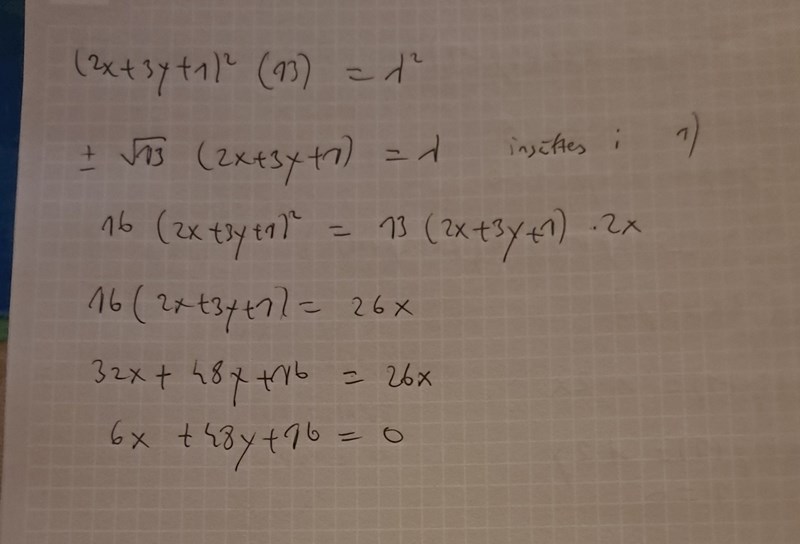 (2x+3y+1)² (13) = λ²
± √13 (2x+3y+1) = λ insättes i 1)
16 (2x+3y+1)² = 13 (2x+3y+1) · 2x
16 (2x+3y+1) = 26x
32x + 48y + 16 = 26x
6x + 48y + 16 = 0